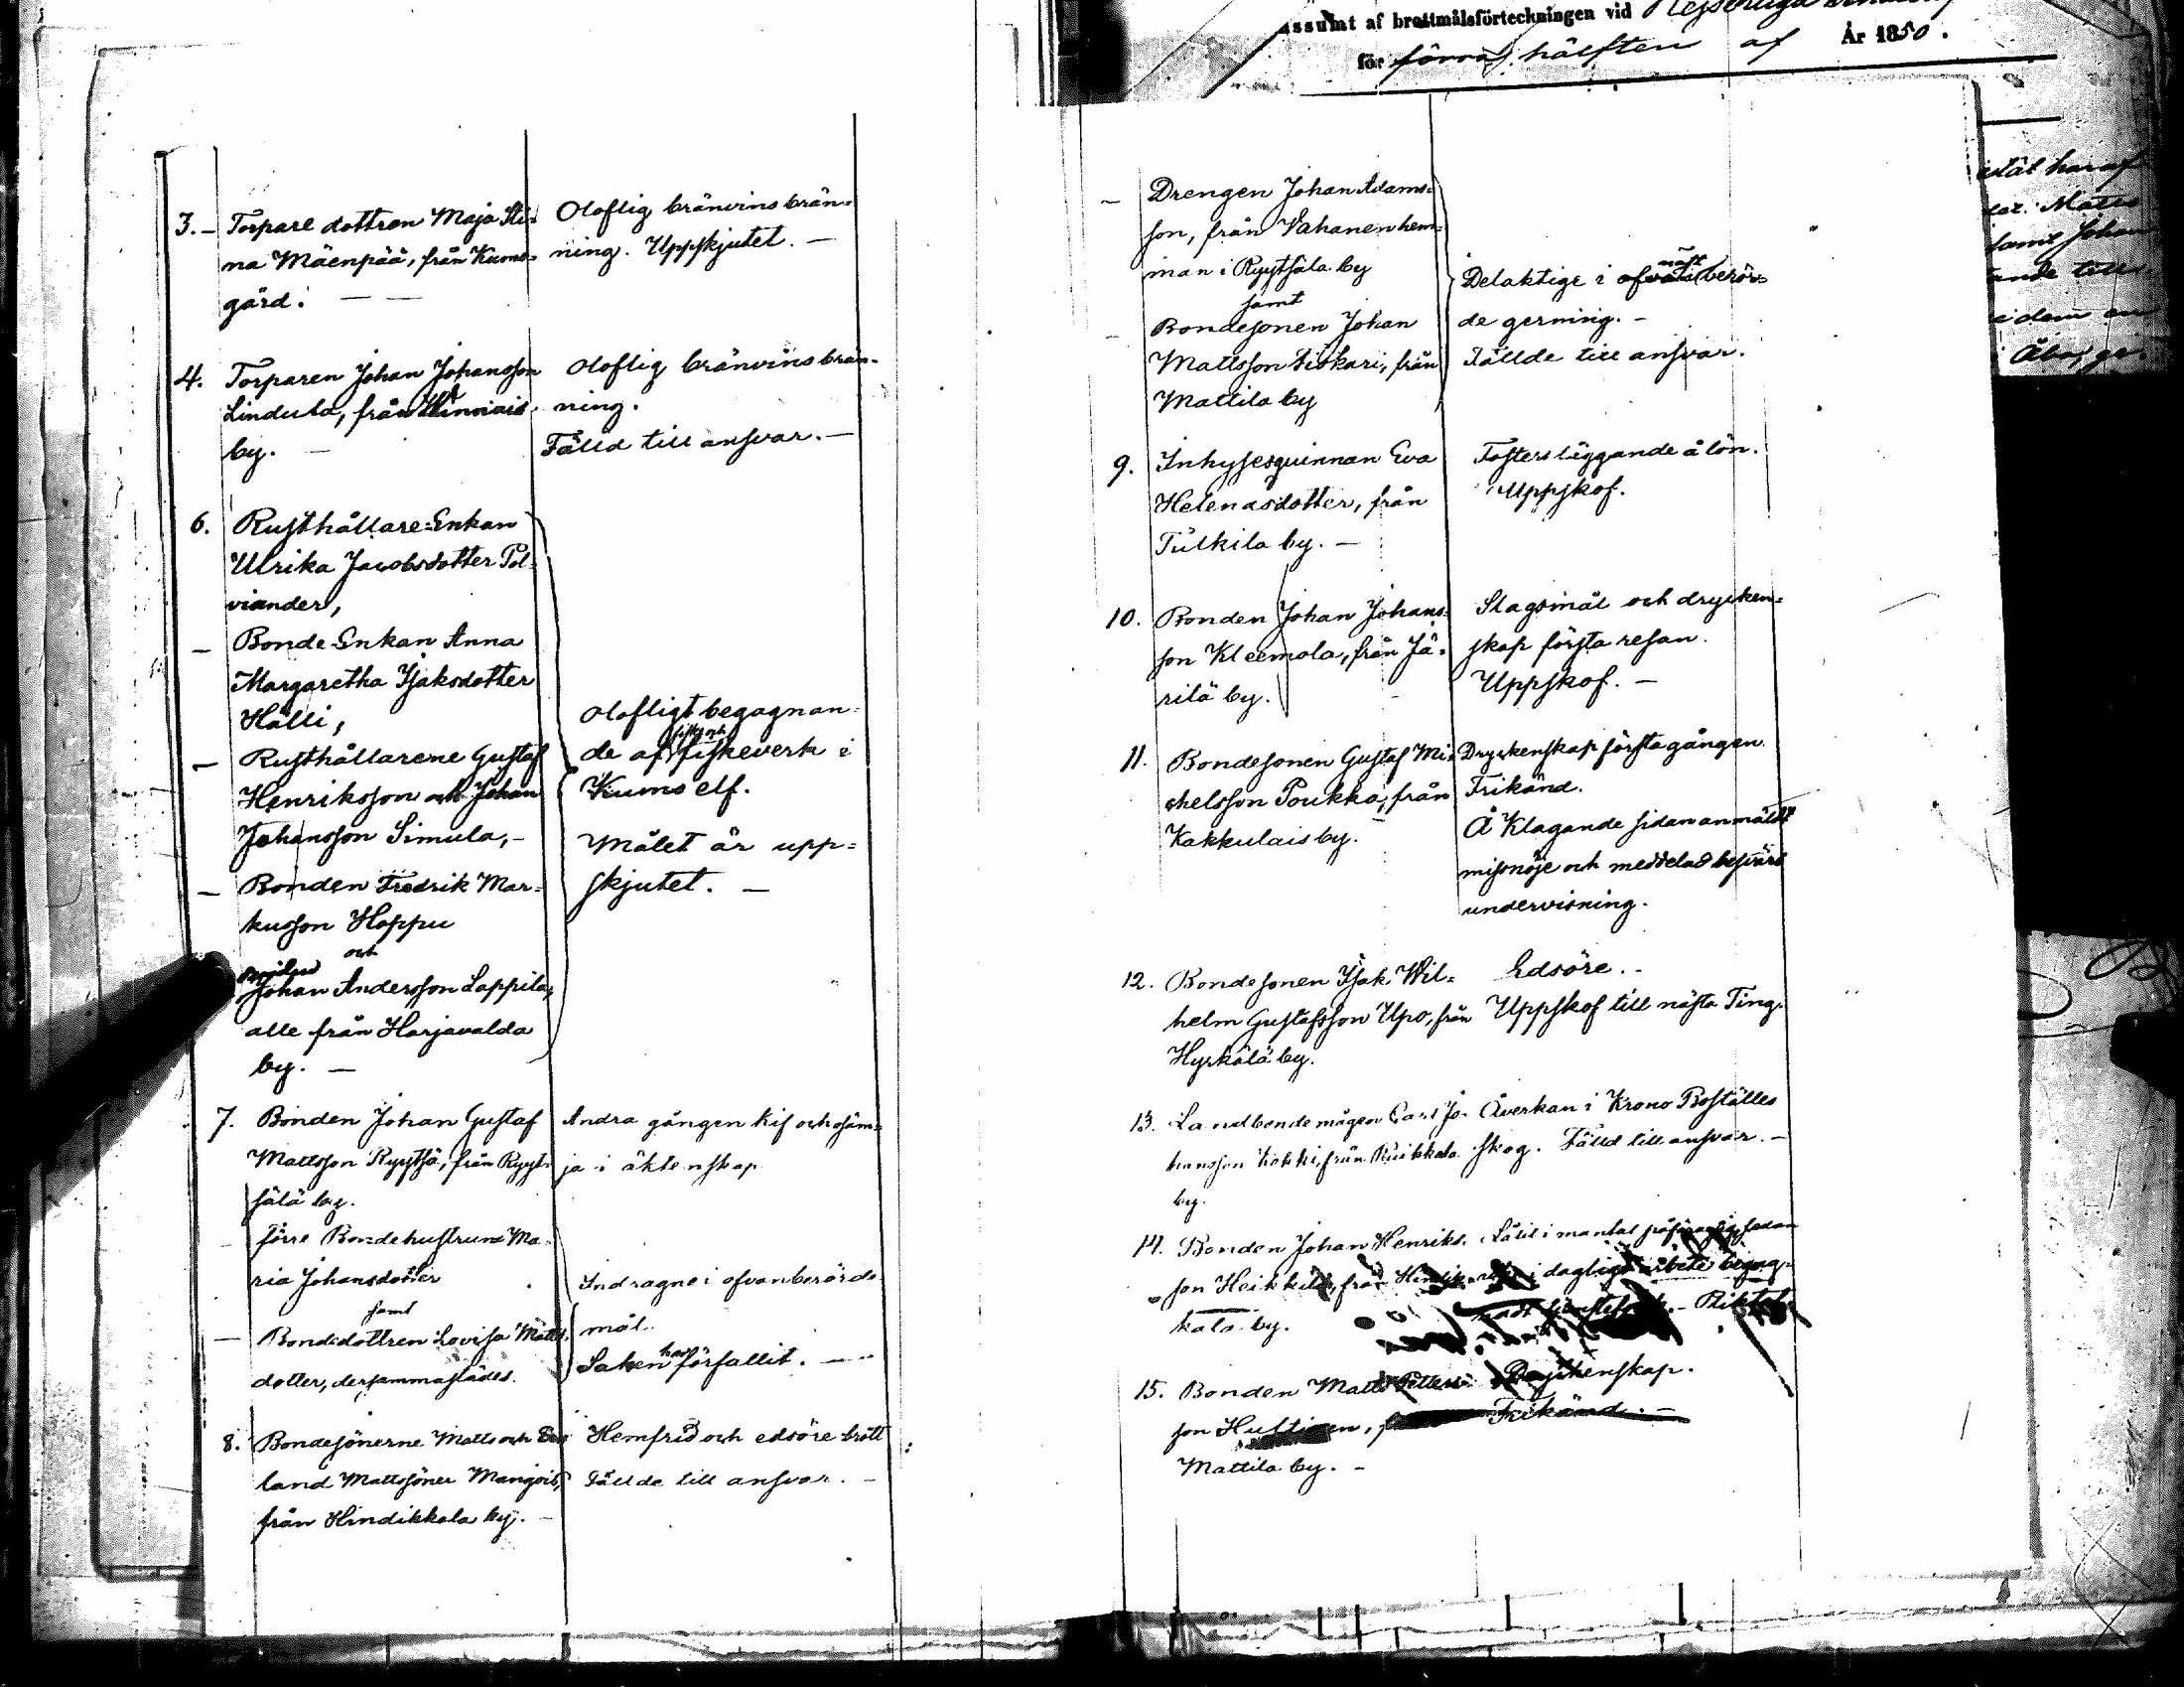 assumt af brottmålsförteckningen vid
för förra hälften af År 1850.
3. Torpare dottren Maja Sti-
na Mäenpää, från Kumo-
gård.
Oloflig bränvinsbrän-
ning. Uppskjutet.
4. Torparen Johan Johansson
Lindula, från
by.
Oloflig bränvinsbrän-
ning.
Fälld till ansvar.
6. Rusthållare-Enkan
Ulrika Jacobsdotter Pol-
viander,
Bonde Enkan Anna
Margaretha Isaksdotter
Hälli,
Rusthållarene Gustaf
Henriksson och Johan
Johansson Simula,
Bonden Fredrik Mar-
kusson Hoppu
och
Johan Andersson Lappila,
alle från Harjavalda
by.
Olofligt begagnan-
de af fiskeverk i
Kumo elf.
Målet är upp-
skjutet.
7. Bonden Johan Gustaf
Mattsson Ryytsä, från Ryyt-
sälä by.
förre Bondehustrun Ma-
ria Johansdotter
samt
Bondedottren Lovisa Matts-
dotter, dersammastädes.
Andra gången kif och osäm-
ja i äktenskap
Indragne i ofvanberörde
mål.
Saken har förfallit.
8. Bondesönerne Matts och
land Mattssöner Mangois,
från Hindikkala by.
Hemfrid och edsöre brott
Fällde till ansvar.
Drengen Johan Adams-
son, från Vahanen hem-
man i Ryytsälä by
samt
Bondesonen Johan
Mattsson Fiskari, från
Mattila by
näst
Delaktige i berör-
de gerning.
Fällde till ansvar.
9. Inhysesqvinnan Eva
Helenasdotter, från
Tulkila by.
Fosters läggande å lön.
Uppskof.
10. Bonden Johan Johans-
son Kleemola, från Jä-
rilä by.
Slagsmål och drycken-
skap första resan.
Uppskof.
11. Bondesonen Gustaf Mi-
chelsson Poukka, från
Kakkulais by.
Dryckenskap första gången.
Frikänd.
Å Klagande sidan anmäldt
missnöje och meddelad besvärs
undervisning.
12. Bondesonen Isak Wil-
helm Gustafsson Upo, från
Hyrkölä by.
Edsöre.
Uppskof till nästa Ting.
13. Landbondemågen Carl Jo-
hansson Kokki, från Ruikkala
by.
Åverkan i Krono Boställes
skog. Fälld till ansvar.
14. Bonden Johan Henriks-
son Heikkilä, från
kala by.
Låtit i mantal sedan
i dagligt arbete begag-
15. Bonden Matts Petters-
son Huhtinen,
Mattila by.
Dryckenskap.
Frikänd.